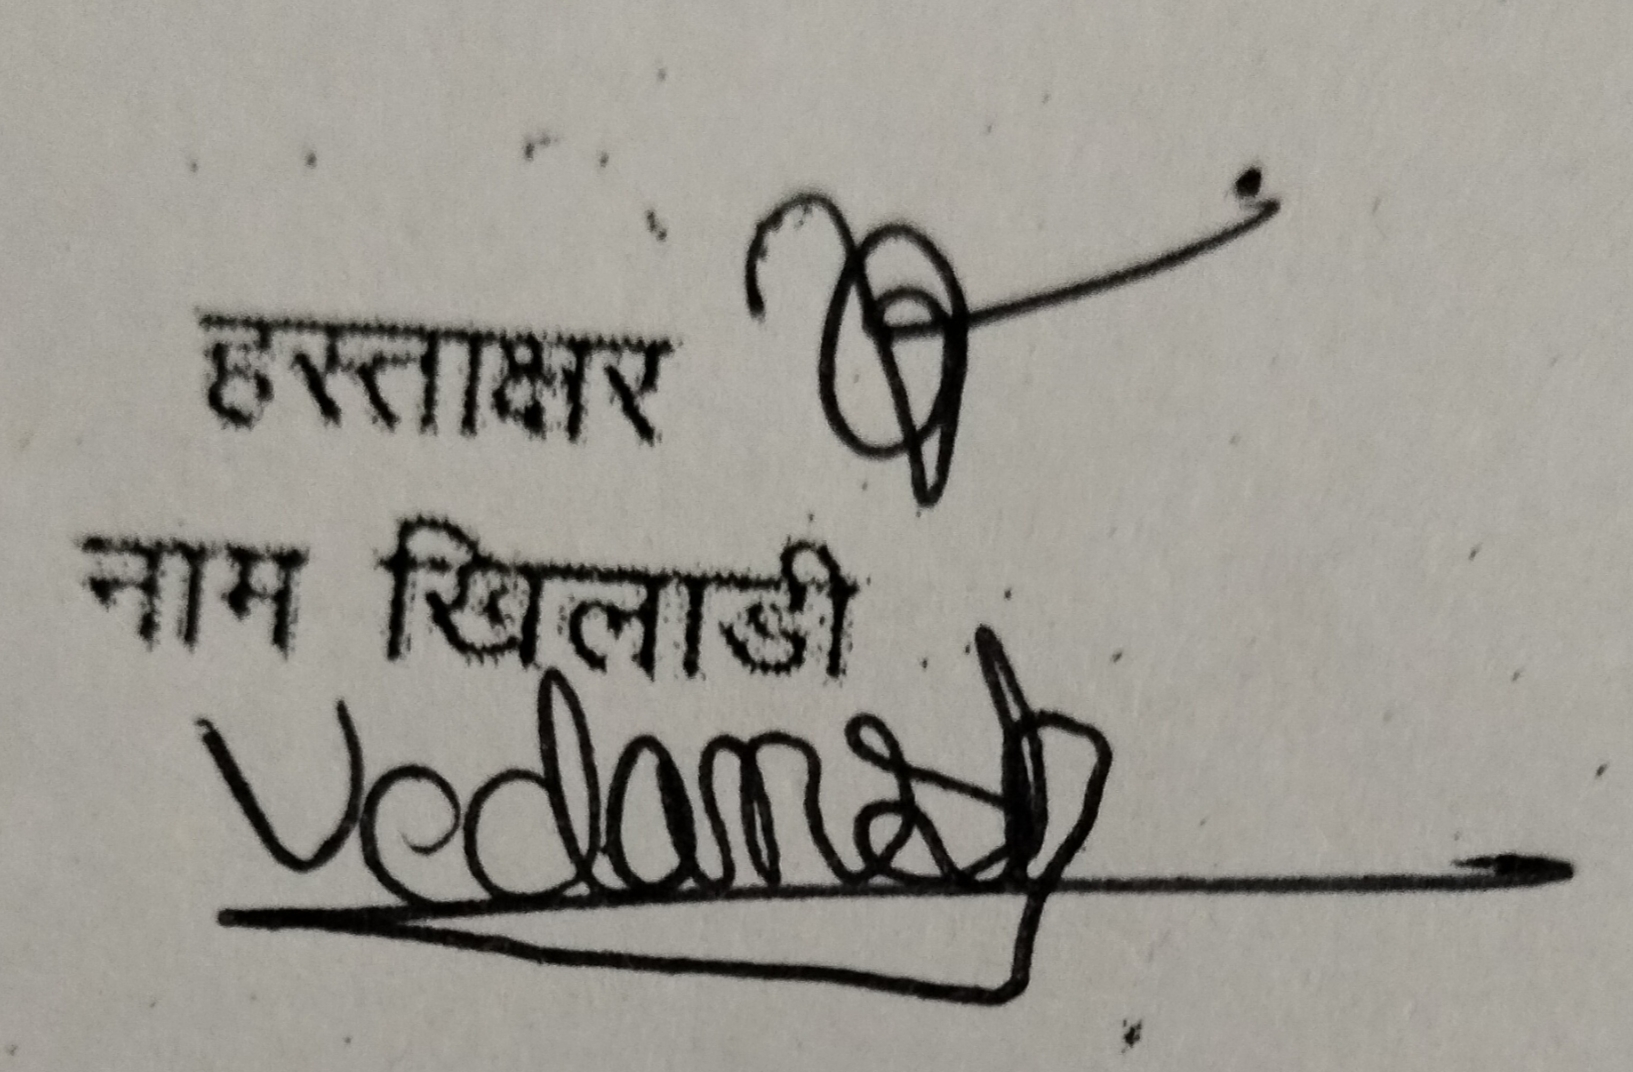 हस्ताक्षर
नाम खिलाडी
Vedansh